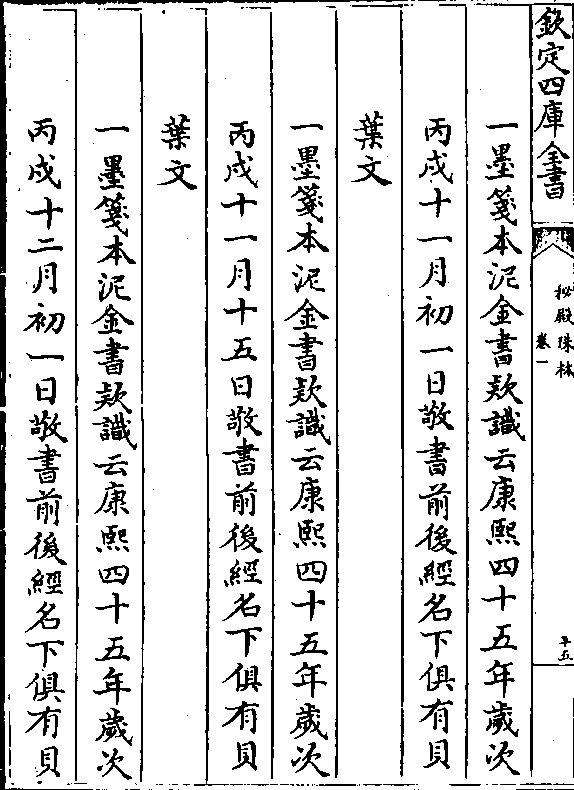 欽定四庫全書
秘殿珠林
卷一
十五
一墨箋本泥金書欵識云康熙四十五年歲次
丙戌十一月初一日敬書前後經名下俱有貝
葉文
一墨箋本泥金書欵識云康熙四十五年歲次
丙戌十一月十五日敬書前後經名下俱有貝
葉文
一墨箋本泥金書欵識云康熙四十五年歲次
丙戌十二月初一日敬書前後經名下俱有貝